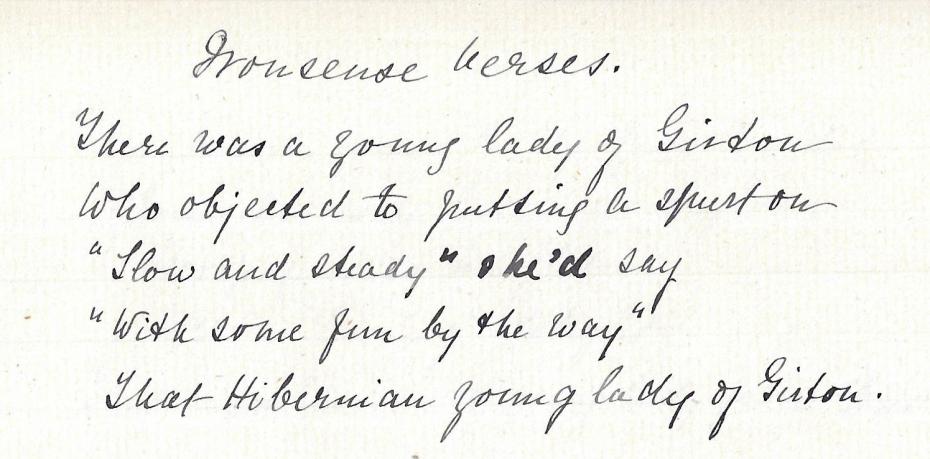 Nonsense Verses.
There was a young lady of Girton
Who objected to putting a spurt on
"Slow and steady" she'd say
"With some fun by the way"
That Hibernian young lady of Girton.